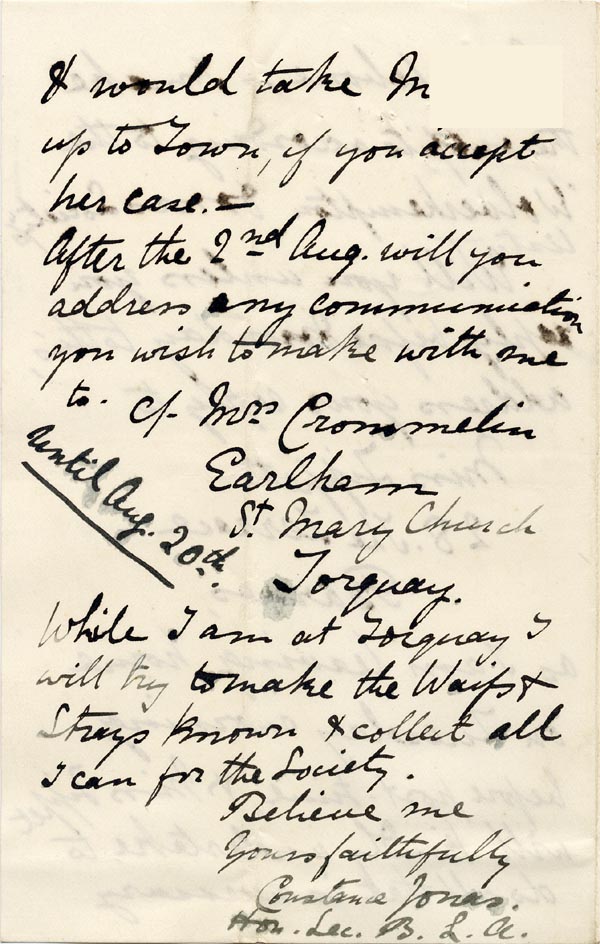 & would take M
up to Town, if you accept
her case. —
After the 2nd Aug. will you
address any communication
you wish to make with me
to. C/- Mrs Crommelin
Earlham
St. Mary Church
Torquay.
until Aug. 20th.
While I am at Torquay I
will try to make the Waifs &
Strays known & collect all
I can for the Society.
Believe me
Yours faithfully
Constance Jonas.
Hon. Sec. B. L. A.